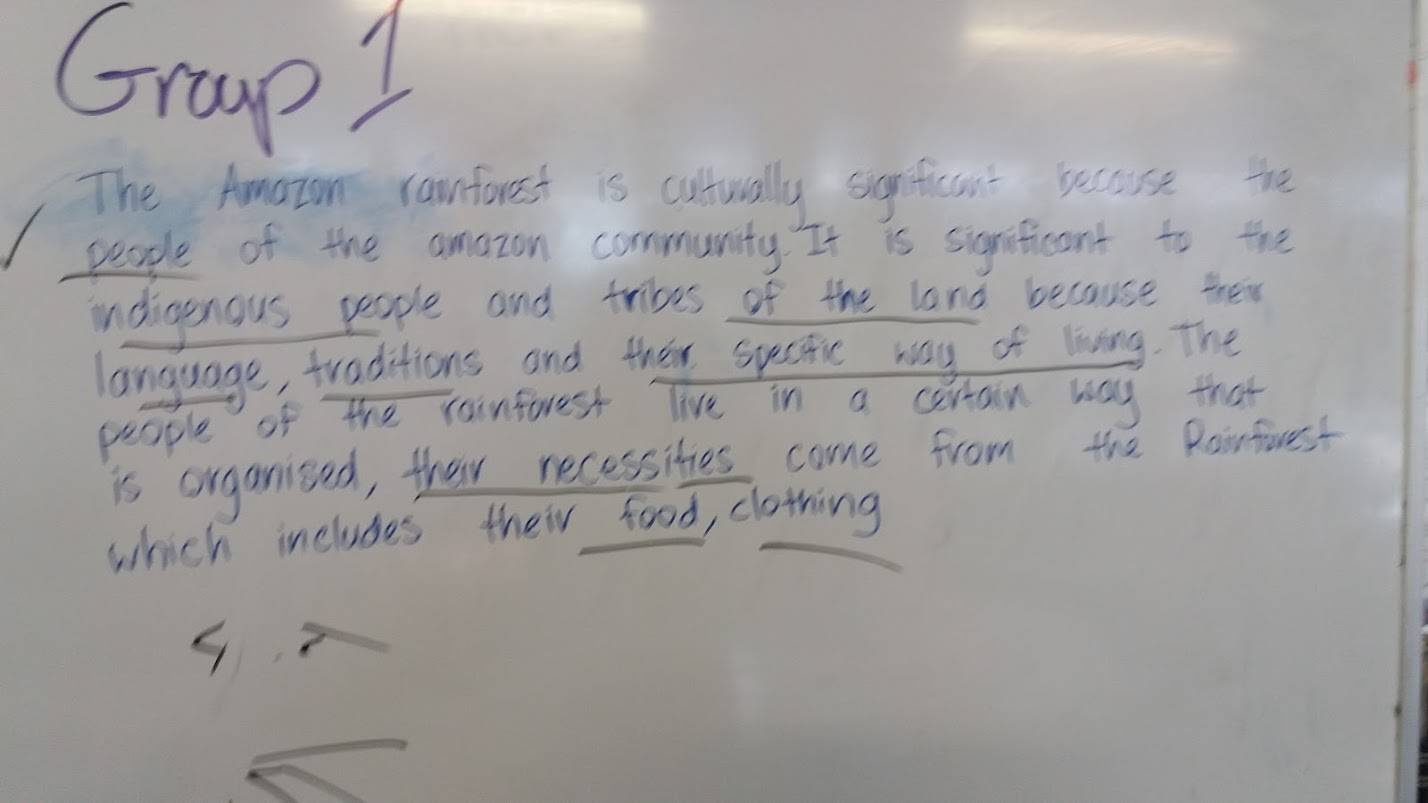 Group 1
The Amazon rainforest is culturally significant because the
people of the amazon community. It is significant to the
indigenous people and tribes of the land because their
language, traditions and their specific way of living. The
people of the rainforest live in a certain way that
is organised, their necessities come from the Rainforest
which includes their food, clothing